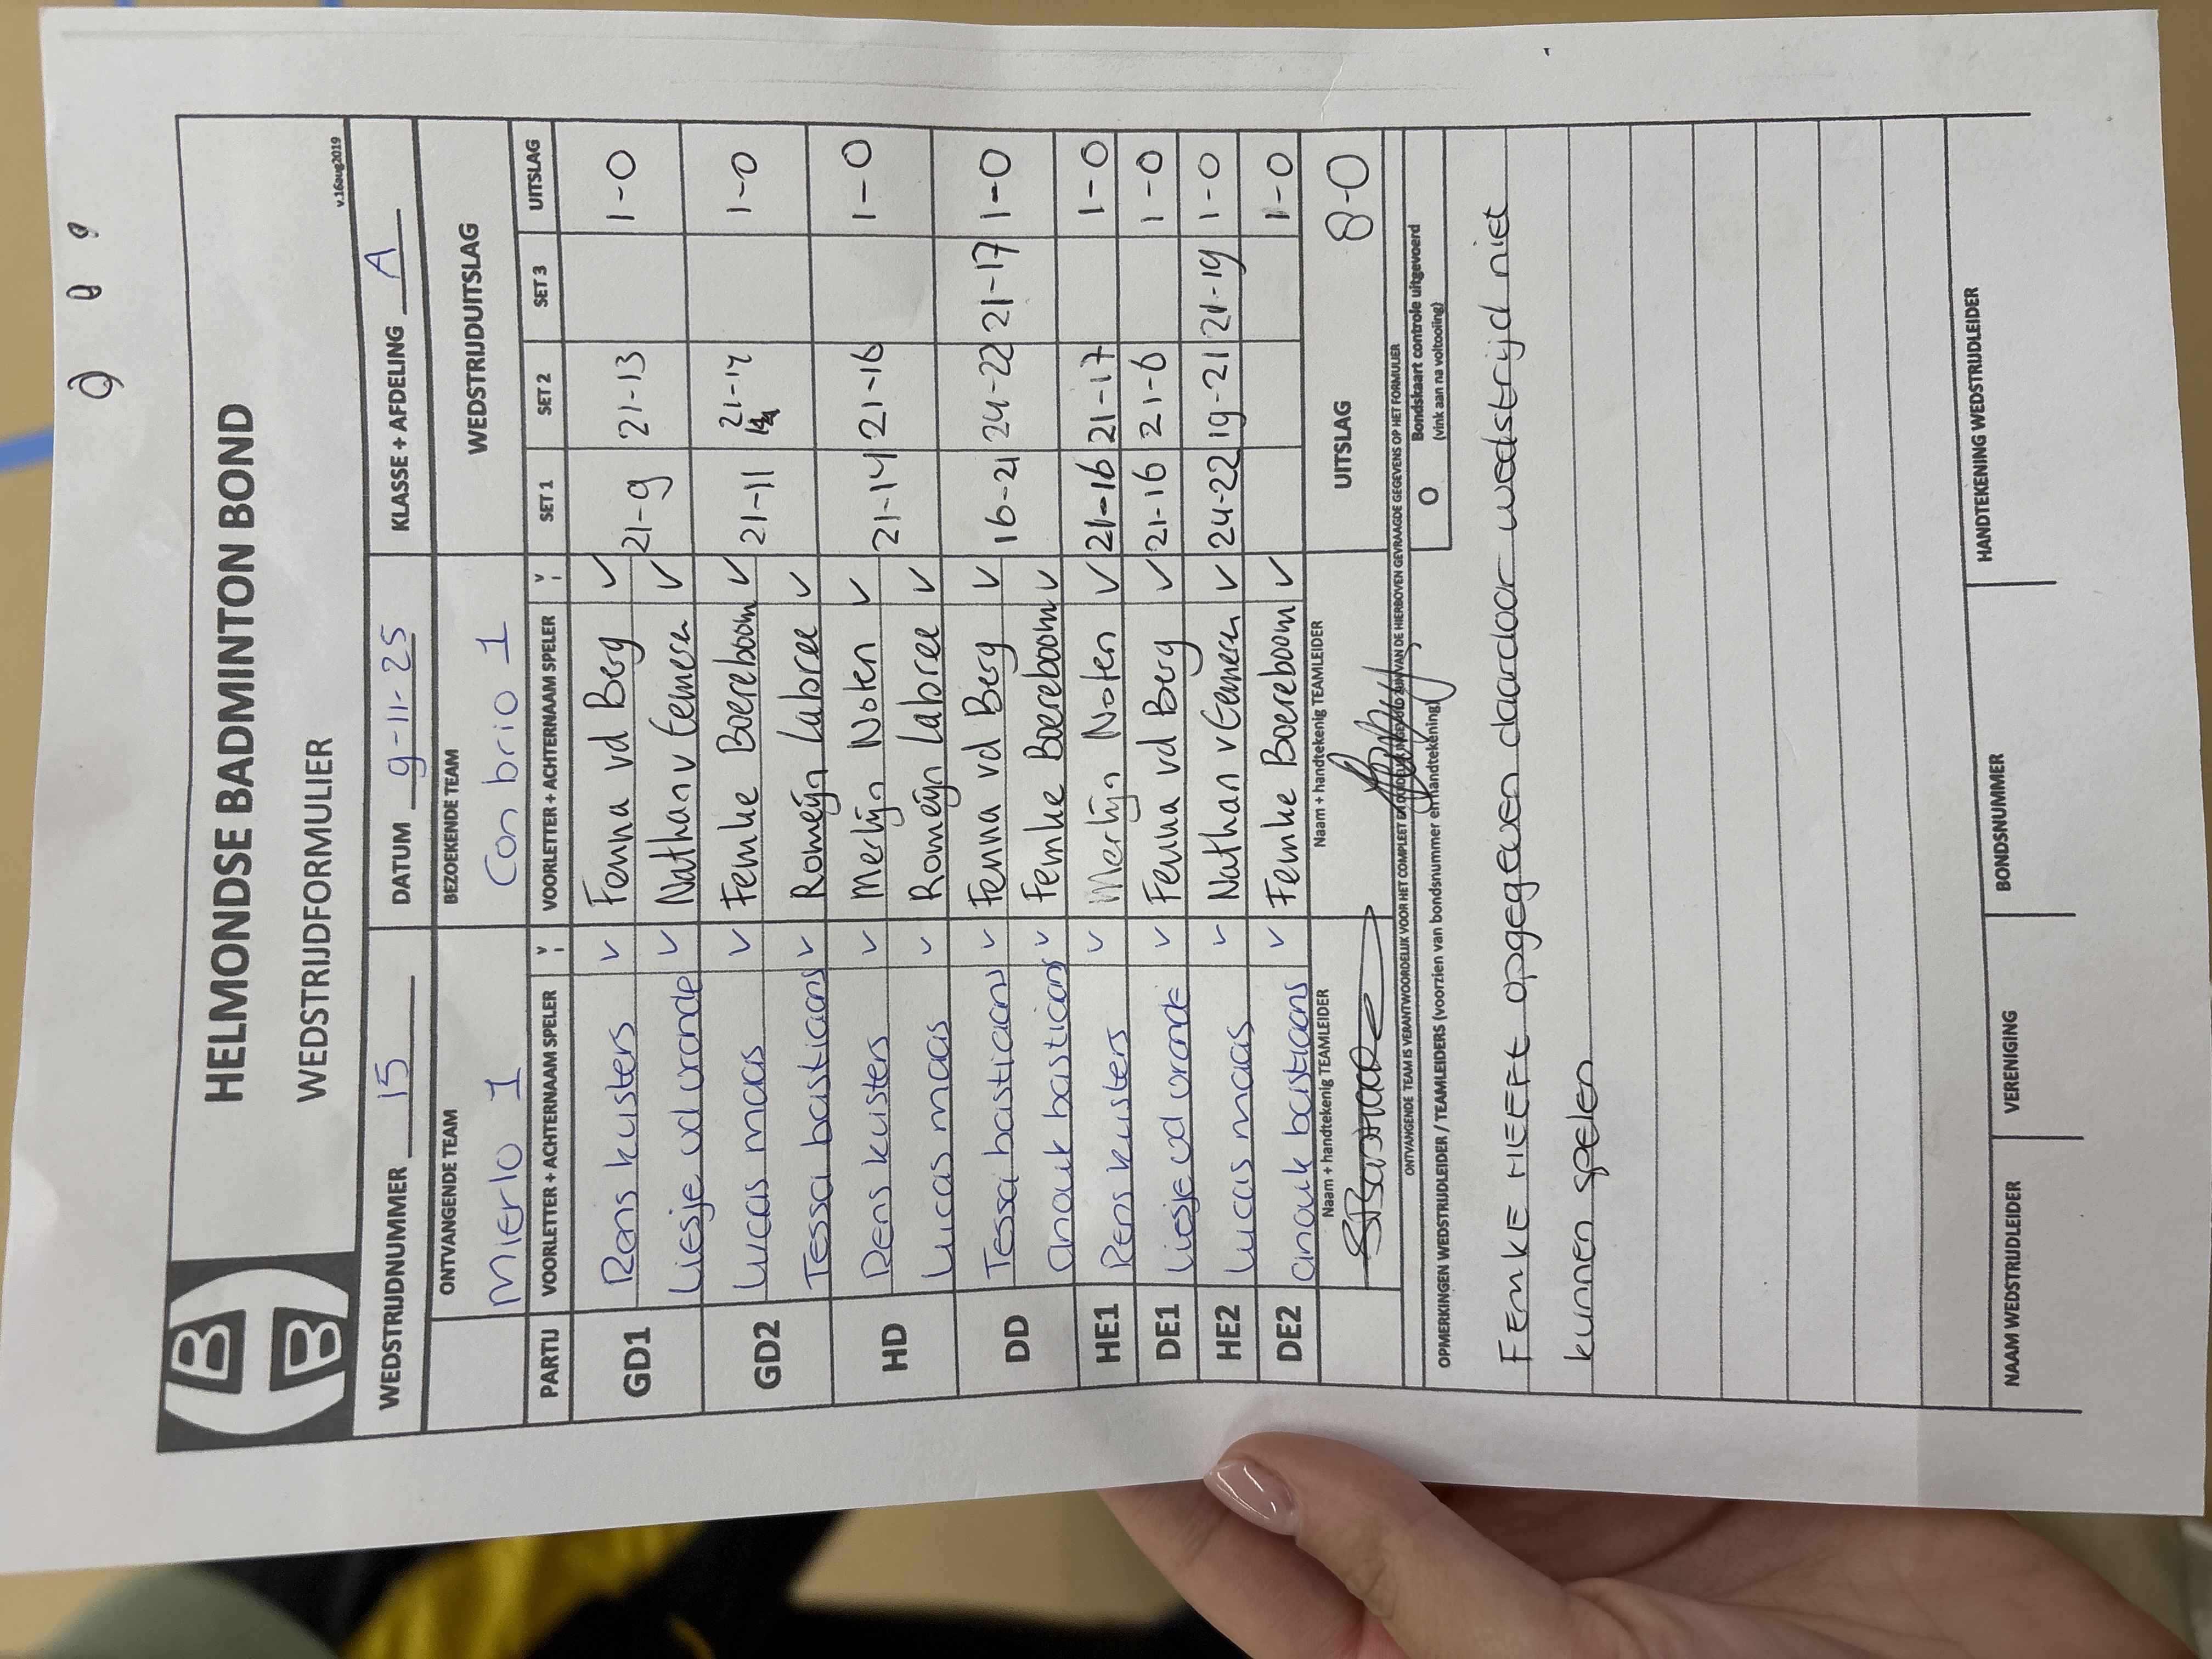 HELMONDSE BADMINTON BOND
WEDSTRIJDFORMULIER
v.16aug2019
WEDSTRIJDNUMMER 15 DATUM 9-11-25 KLASSE + AFDELING A
ONTVANGENDE TEAM BEZOEKENDE TEAM WEDSTRIJDUITSLAG
Mierlo 1 Con brio 1
PARTIJ VOORLETTER + ACHTERNAAM SPELER V VOORLETTER + ACHTERNAAM SPELER V SET 1 SET 2 SET 3 UITSLAG
GD1 Rens kusters ✓ Fenna vd Berg ✓ 21-9 21-13 1-0
Liesje vd vrande ✓ Nathan v Eemeren ✓
GD2 Lucas maas ✓ Femke Boereboom ✓ 21-11 21-14 1-0
Tessa bastiaans ✓ Romeijn Labree ✓
HD Rens kusters ✓ Merlijn Noten ✓ 21-14 21-16 1-0
Lucas maas ✓ Romeijn Labree ✓
DD Tessa bastiaans ✓ Fenna vd Berg ✓ 16-21 24-22 21-17 1-0
anouk bastiaans ✓ Femke Boereboom ✓
HE1 Rens kusters ✓ Merlijn Noten ✓ 21-16 21-17 1-0
DE1 Liesje vd vrande ✓ Fenna vd Berg ✓ 21-16 21-6 1-0
HE2 Lucas maas ✓ Nathan v Eemeren ✓ 24-22 19-21 21-19 1-0
DE2 anouk bastiaans ✓ Femke Boereboom ✓ 1-0
Naam + handtekenig TEAMLEIDER Naam + handtekenig TEAMLEIDER UITSLAG 8-0
ONTVANGENDE TEAM IS VERANTWOORDELIJK VOOR HET COMPLEET EN VAN DE HIERBOVEN GEVRAAGDE GEGEVENS OP HET FORMULIER
OPMERKINGEN WEDSTRIJDLEIDER / TEAMLEIDERS (voorzien van bondsnummer en handtekening)
O Bondskaart controle uitgevoerd
(vink aan na voltooiing)
Femke HEEFT opgegeven daardoor wedstrijd niet
kunnen spelen
NAAM WEDSTRIJDLEIDER VERENIGING BONDSNUMMER HANDTEKENING WEDSTRIJDLEIDER